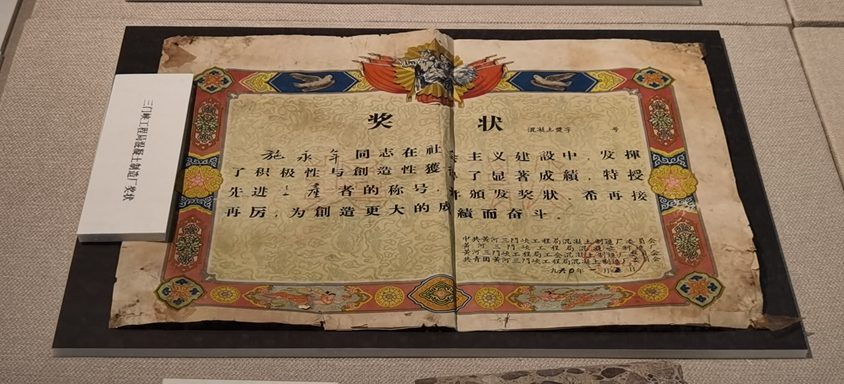 三门峡工程局混凝土制造厂奖状
奖状
混凝土奖字 号
施永年同志在社会主义建設中,发揮
了积极性与創造性獲得了显著成績,特授
先进生產者的称号,并頒发奖狀,希再接
再厉,为創造更大的成績而奋斗.
中共黄河三門峡工程局混凝土制造厂委員会
黄河三門峡工程局混凝土制造厂
黄河三門峡工程局工会混凝土制造厂委員会
共青团黄河三門峡工程局混凝土制造厂委員会
一九六〇年一月 日